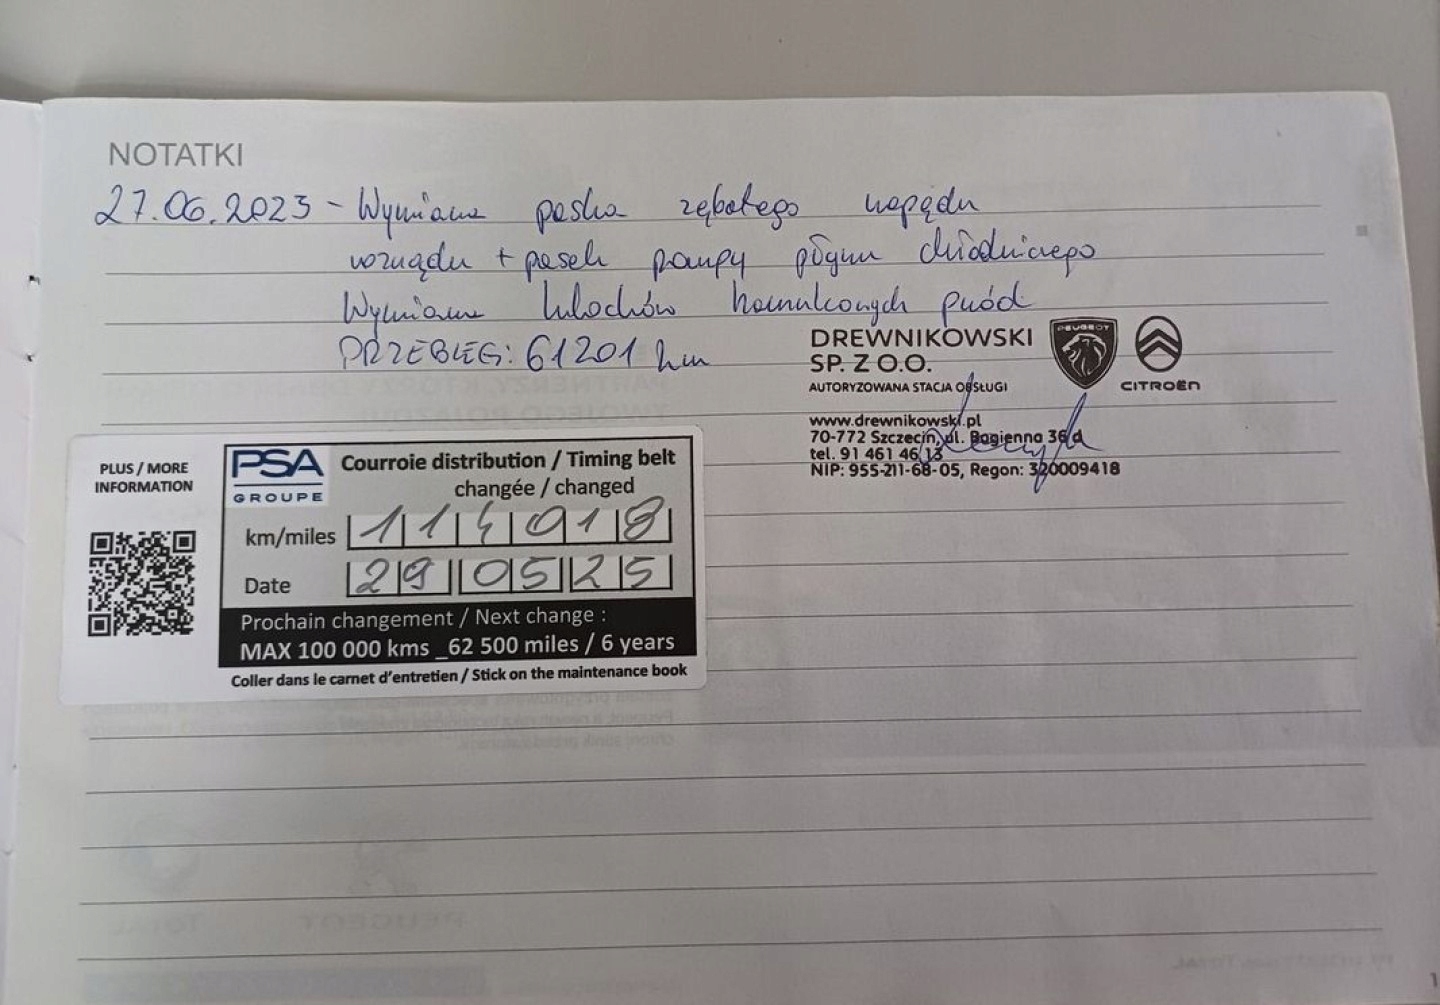 NOTATKI
27.06.2023 - Wymiana paska zębatego napędu
rozrządu + pasek pompy płynu chłodniczego
Wymiana klocków hamulcowych przód
PRZEBIEG: 61201 km
DREWNIKOWSKI
SP. Z O.O.
AUTORYZOWANA STACJA OBSŁUGI
PEUGEOT
CITROËN
www.drewnikowski.pl
70-772 Szczecin, ul. Bagienna 36d
tel. 91 461 46 13
NIP: 955-211-68-05, Regon: 320009418
PLUS / MORE
INFORMATION
PSA
GROUPE
Courroie distribution / Timing belt
changée / changed
km/miles 114018
Date 29 05 25
Prochain changement / Next change :
MAX 100 000 kms _62 500 miles / 6 years
Coller dans le carnet d'entretien / Stick on the maintenance book
1